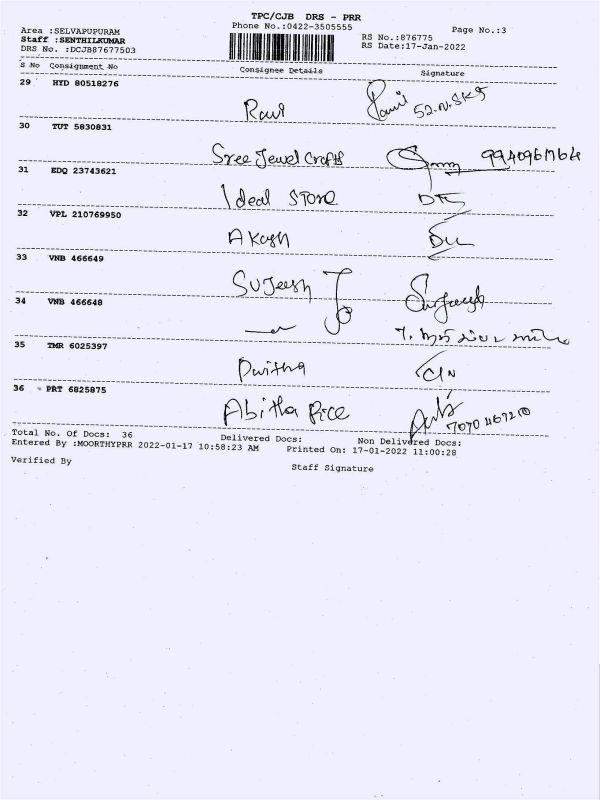 TPC/CJB DRS - PRR
Area :SELVAPUPURAM Phone No.:0422-3505555 Page No.:3
Staff :SENTHILKUMAR RS No.:876775
DRS No. :DCJB87677503 RS Date:17-Jan-2022
S No Consignment No Consignee Details Signature
29 HYD 80518276
Ravi 52.N.SKS
30 TUT 5830831
Sree Jewel Crafts
31 EDQ 23743621
Ideal STORE
32 VPL 210769950
Akash
33 VNB 466649
SUJeesh
34 VNB 466648
35 TMR 6025397
36 PRT 6825875
Abitha Rice
Total No. Of Docs: 36 Delivered Docs: Non Delivered Docs:
Entered By :MOORTHYPRR 2022-01-17 10:58:23 AM Printed On: 17-01-2022 11:00:28
Verified By Staff Signature